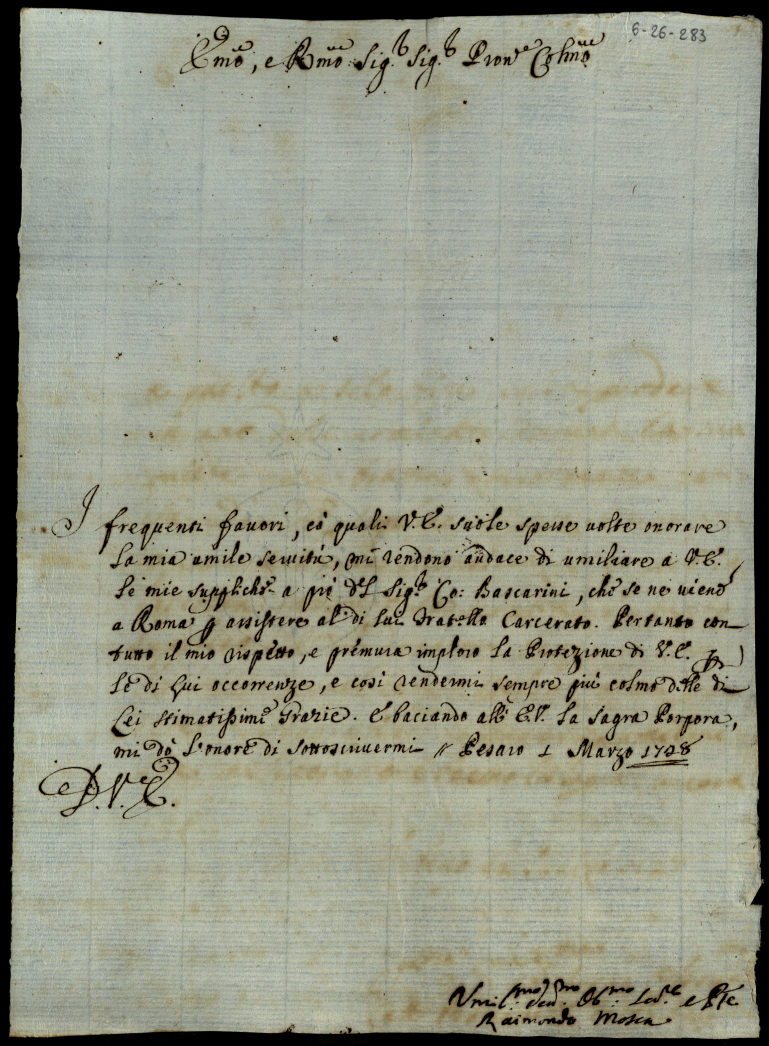 6-26-283
Emo, e Rmo Sig.r Sig.r Pron.e Colmo
I frequenti favori, co quali V.E. suole spesse volte onorare
la mia umile servitù, mi rendono audace di umiliare a V.E.
le mie suppliche a piò del Sig.r Co: Bascarini, che se ne viene
a Roma p assistere al di lui Fratello Carcerato. Pertanto con
tutto il mio rispetto, e premura imploro la Protezione di V.E.
le di lui occorrenze, e così rendermi sempre più colmo delle di
Lei stimatissime Grazie. E baciando all' E.V. la Sagra Porpora,
mi dò l'onore di sottoscrivermi // Pesaro 1 Marzo 1728
D. V. E.
Umil.mo Obb.mo
Raimondo Mosca